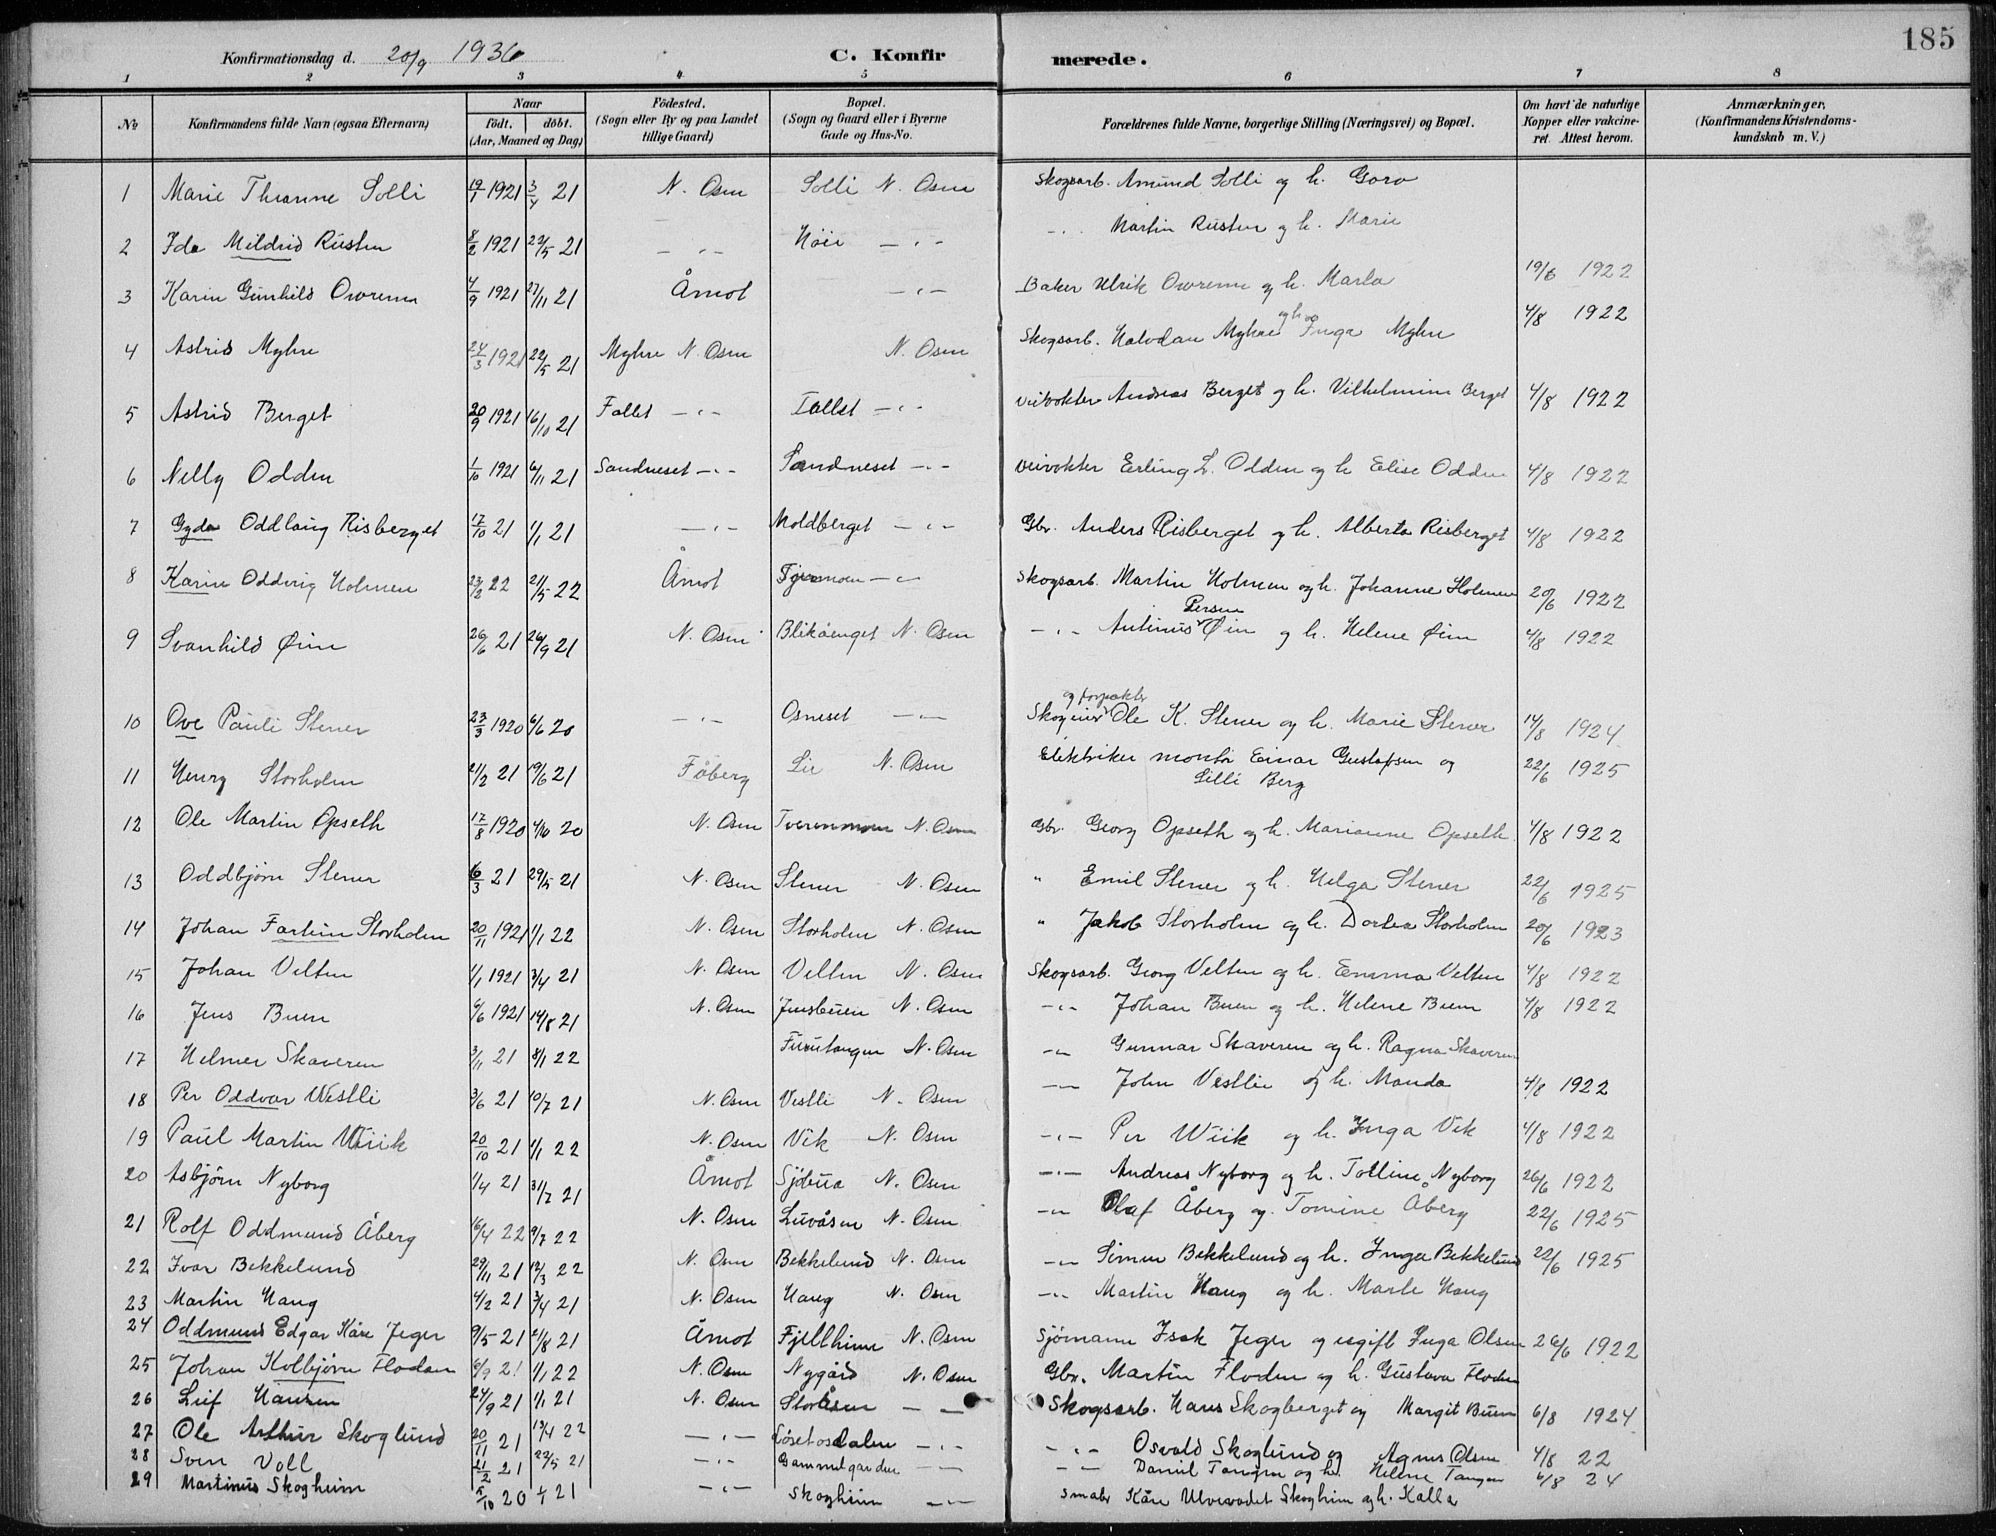 185
Konfirmationsdag d. 20/9 1936 C. Konfirmerede.
1 2 3 4 5 6 7 8
No Konfirmandens fulde Navn (ogsaa Efternavn) Naar födt. döbt. (Aar, Maaned og Dag) Födested. (Sogn eller By og paa Landet tillige Gaard) Bopæl. (Sogn og Gaard eller i Byerne Gade og Hus-No. Forældrenes fulde Navne, borgerlige Stilling (Næringsvei) og Bopæl. Om havt de naturlige Kopper eller vakcineret. Attest herom. Anmærkninger, (Konfirmandens Kristendomskundskab m. V.)
1 Marie Solli 19/1 1921 3/4 21 N. Osen Solli N. Osen Skogsarb. Amund Solli og h. Goro
2 Ida Mildrid Rusten 8/2 1921 22/5 21 - " - Höie - " - - " - Martin Rusten og h. Marie 19/6 1922
3 Karin Gunhild Owrenn 4/9 1921 27/11 21 Åmot - " - Baker Ulrik Owrenn og h. Marla 4/8 1922
4 Astrid Myhre 24/3 1921 22/5 21 Myhre N. Osen N. Osen Skogsarb. Halvdan Myhre og h. Inga Myhre
5 Astrid Berget 20/9 1921 16/10 21 Fallet - " - Fallet - " - Veivokter Andreas Berget og h. Vilhelmine Berget 4/8 1922
6 Nelly Odden 1/10 1921 6/11 21 Sandneset - " - Sandneset - " - Veivokter Erling L. Odden og h Elise Odden 4/8 1922
7 Gyda Oddlaug Risberget 17/10 21 1/1 21 - " - Moldberget - " - Gbr. Anders Risberget og h. Alberta Risberget 4/8 1922
8 Karin Oddvig Holmen 23/2 22 21/5 22 Åmot - " - Skogsarb. Martin Holmen og h. Johanne Holmen 20/6 1922
9 Svanhild Öien 26/6 21 26/9 21 N. Osen Blikåenget N. Osen - " - Antinus Persen Öien og h. Helene Öien 4/8 1922
10 Ove Pauli Stener 23/3 1920 6/6 20 - " - Osneset - " - Skogeier og forpakter Ole K. Stener og h. Marie Stener 14/8 1924
11 Henry Storholm 21/2 21 19/6 21 Fåberg Lie N. Osen Elektriker montör Einar Gustafsen og Lilli Berg 22/6 1925
12 Ole Martin Opseth 17/8 1920 4/10 20 N. Osen Tverrmoen N. Osen Gbr. Georg Opseth og h. Marianne Opseth 4/8 1922
13 Oddbjörn Stener 6/3 21 29/5 21 N. Osen Stener N. Osen " Emil Stener og h. Helga Stener 22/6 1925
14 Johan Fartein Storholm 20/11 1921 1/1 22 N. Osen Storholm N. Osen " Jakob Storholm og h. Dortea Storholm 20/6 1923
15 Johan Velten 1/1 1921 3/4 21 N. Osen Velten N. Osen Skogsarb. Georg Velten og h. Emma Velten 4/8 1922
16 Jens Buen 6/6 1921 14/8 21 N. Osen Jensbuen N. Osen - " - Johan Buen og h. Helene Buen 4/8 1922
17 Helmer Skaveren 3/11 21 8/1 22 Furutangen N. Osen - " - Gunnar Skaveren og h. Ragna Skaveren
18 Per Oddvar Westli 3/6 21 10/7 21 N. Osen Vestli N. Osen - " - John Vestlie og h. Manda 4/8 1922
19 Paul Martin Wiik 20/10 21 1/1 22 N. Osen Vik N. Osen - " - Per Wiik og h. Inga Vik 4/8 1922
20 Asbjörn Nyborg 1/4 21 31/7 21 Åmot Sjöbua N. Osen - " - Andreas Nyborg og h. Tolline Nyborg 26/6 1922
21 Rolf Oddmund Åberg 16/4 22 9/7 22 N. Osen Luvåsen N. Osen - " - Olaf Åberg og Tomine Åberg 22/6 1925
22 Ivar Bekkelund 29/11 21 12/3 22 N. Osen Bekkelund N. Osen - " - Simen Bekkelund og h. Inga Bekkelund 22/6 1925
23 Martin Haug 4/2 21 3/4 21 N. Osen Haug N. Osen - " - Martin Haug og h. Marte Haug
24 Oddmund Edgar Kåre Jeger 9/5 21 21/8 21 Åmot Fjellheim N. Osen Sjömann Isak Jeger og ugift Inga Olsen 26/6 1922
25 Johan Kolbjörn Floden 6/9 21 1/1 22 N. Osen Nygård N. Osen Gbr. Martin Floden og h. Gustava Floden
26 Leif Hansen 24/9 21 1/1 21 N. Osen Storåsen - " - Skogsarb. Hans Skogberget og Margit Buen 6/8 1924
27 Ole Arthur Skoglund 20/11 21 13/4 22 - " - Löset osdalen - " - - " - Osvald Skoglund og Agnes Olsen 4/8 22
28 Sven Voll 21/2 21 22/5 21 - " - Gammelgarden - " - - " - Daniel Tangen og h. Helene Tangen 6/8 24
29 Martinus Skogheim 5/10 20 1/1 21 - " - Skogheim - " - Småbr Kåre Skogheim og h. Kalla